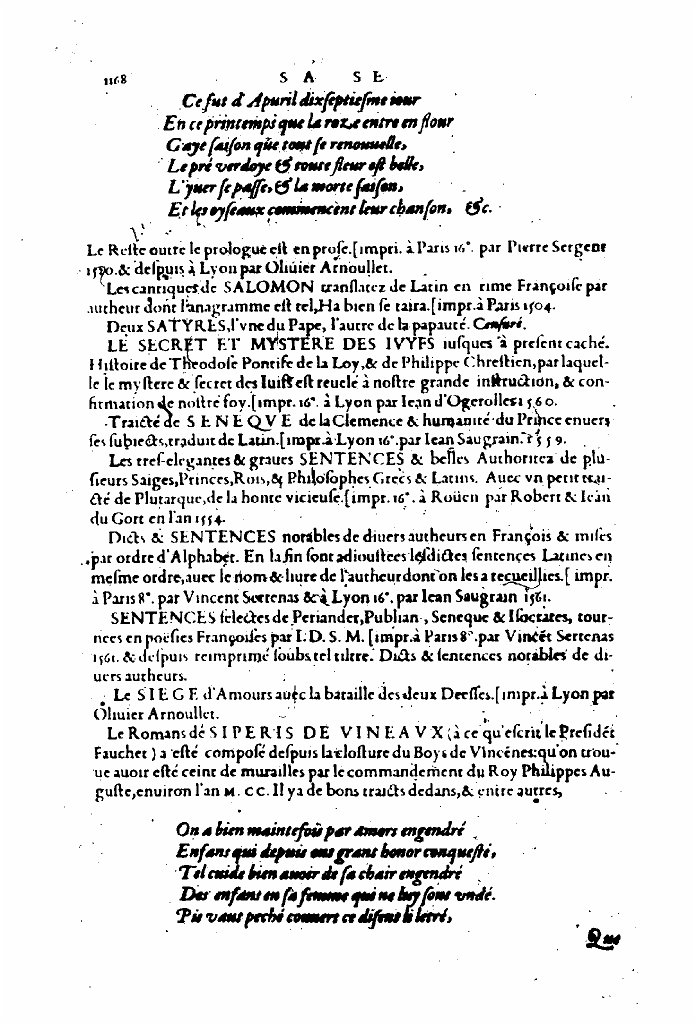 1168 S A S E
Ce fut d'Apuril dixseptiesme iour
En ce printemps que la roze entre en flour
Gaye saison que tout se renouuelle,
Le pré verdoye & toute fleur est belle,
L'yuer se passe, & la morte saison,
Et les oyseaux commencent leur chanson, &c.
Le Reste outre le prologue est en prose. [impri. à Paris 16°. par Pierre Sergent
& despuis à Lyon par Oliuier Arnoullet.
Les cantiques de SALOMON translatez de Latin en rime Françoise par
autheur dont l'anagramme est tel, Ha bien se taira. [impr. à Paris 1504.
Deux SATYRES, l'vne du Pape, l'autre de la papauté. Censuré.
LE SECRET ET MYSTERE DES IVYFS iusques à present caché.
Histoire de Theodose Pontife de la Loy, & de Philippe Chrestien, par laquel-
le le mystere & secret des Iuifs est reuelé à nostre grande instruction, & con-
firmation de nostre foy. [impr. 16°. à Lyon par Iean d'Ogerolles 1560.
Traicté de SENEQVE de la Clemence & humanité du Prince enuers
ses subiects, traduit de Latin. [impr. à Lyon 16°. par Iean Saugrain. 1559.
Les tres-elegantes & graues SENTENCES & belles Authoritez de plu-
sieurs Saiges, Princes, Rois, & Philosophes Grecs & Latins. Auec vn petit trai-
cté de Plutarque, de la honte vicieuse. [impr. 16°. à Roüen par Robert & Iean
du Gort en l'an 1554.
Dicts & SENTENCES notables de diuers autheurs en François & mises
par ordre d'Alphabet. En la fin sont adioustees lesdictes sentences Latines en
mesme ordre, auec le nom & liure de l'autheur dont on les a recueillies. [impr.
à Paris 8°. par Vincent Sertenas & à Lyon 16°. par Iean Saugrain 1561.
SENTENCES selectes de Periander, Publian, Seneque & Isocrates, tour-
nees en poësies Françoises par I. D. S. M. [impr. à Paris 8°. par Vincẽt Sertenas
1561. & despuis reimprimé soubs tel tiltre. Dicts & sentences notables de di-
uers autheurs.
Le SIEGE d'Amours auec la bataille des deux Deesses. [impr. à Lyon par
Oliuier Arnoullet.
Le Romans de SIPERIS DE VINEAVX (à ce qu'escrit le Presidẽt
Fauchet) a esté composé despuis la closture du Boys de Vincẽnes: qu'on trou-
ue auoir esté ceint de murailles par le commandement du Roy Philippes Au-
guste, enuiron l'an M. CC. Il y a de bons traicts dedans, & entre autres,
On a bien maintefoü par amors engendré
Enfans qui depuis ons grant honor conquesté,
Tel cuide bien auoir de sa chair engendré
Des enfans en sa femme qui ne luy sons vndé.
Pis vaut peché couuert ce disent li letré,
Que